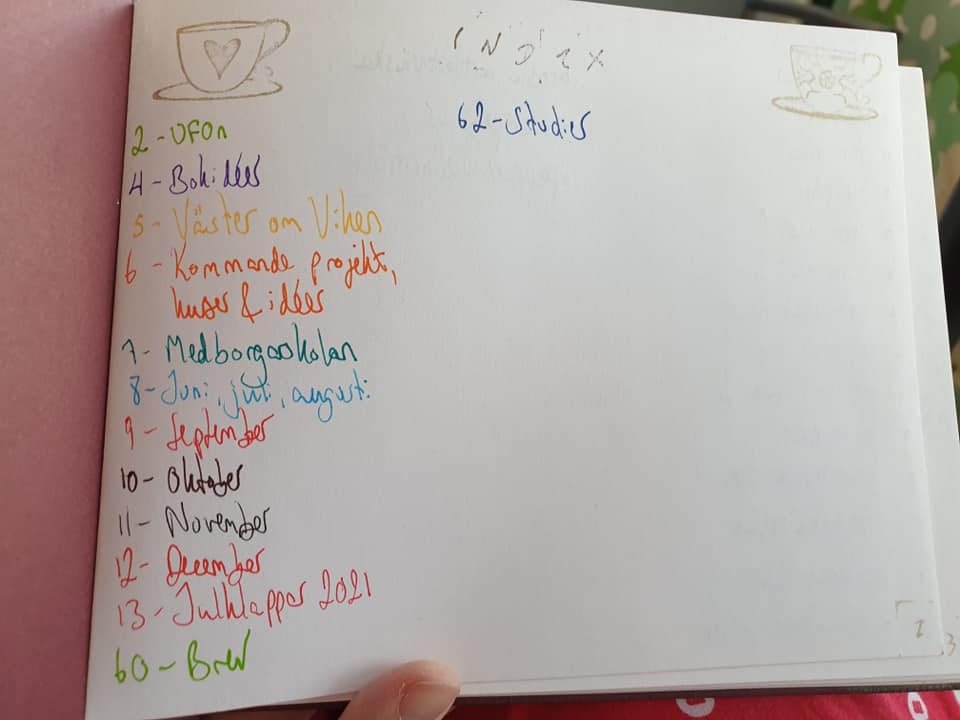 INDEX
2 - UFOn
4 - Bokidéer
5 - Väster om Viken
6 - Kommande projekt,
& idéer
7 - Medborgarskolan
8 - Juni, juli, augusti
9 - September
10 - Oktober
11 - November
12 - December
13 - Julklappar 2021
60 - Brev
62 - Studier
3